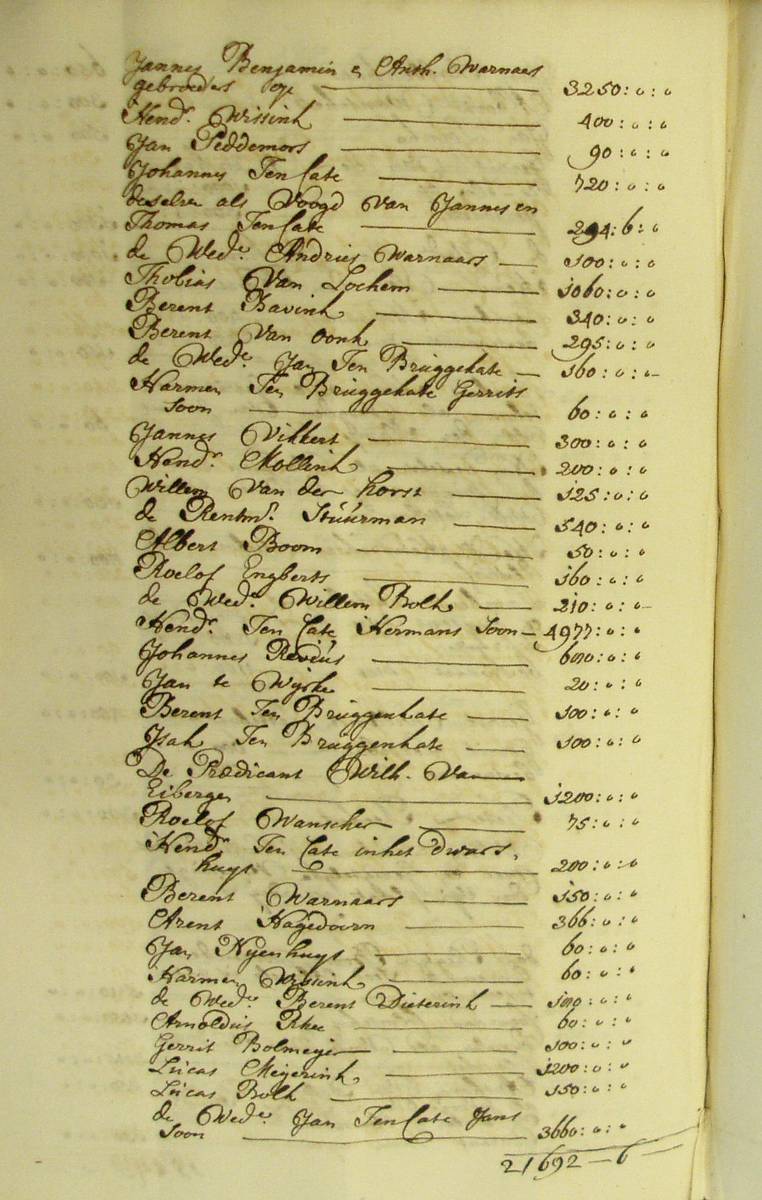 Jannes Benjamin & Anth. Warnaars
gebroeders op 3250:0:0
Hendr. Wissink 400:0:0
Jan Peddemors 90:0:0
Johannes Ten Cate 720:0:0
deselve als Voogd van Jannes en
Thomas Ten Cate 294:6:0
de Wede. Andries Warnaars 100:0:0
Thobias Van Lochem 1060:0:0
Berent Bavink 340:0:0
Berent Van Oonk 295:0:0
de Wede. Jan Ten Bruggekate 160:0:0
Harmen Ten Bruggekate Gerrits
soon 60:0:0
Jannes Vikkert 300:0:0
Hendr. Mollink 200:0:0
Willem Van der horst 125:0:0
de Rentmr. Stuurman 540:0:0
Albert Boom 50:0:0
Roelof Engberts 160:0:0
de Wede. Willem Bolk 210:0:0
Hendr. Ten Cate Hermans Soon 4977:0:0
Johannes Revius 600:0:0
Jan te Wyrke 20:0:0
Berent Ten Bruggenkate 100:0:0
Isak Ten Bruggenkate 100:0:0
De Prædicant Wilh. Van
Eibergen 1200:0:0
Roelof Wanscher 75:0:0
Hendr. Ten Cate inhet Dwars
huys 200:0:0
Berent Warnaars 150:0:0
Arent Hagedoorn 366:0:0
Jan Nyenhuys 60:0:0
Harmen Wissink 60:0:0
de Wede. Berent Dieterink 100:0:0
Arnoldus Rhee 60:0:0
Gerrit Bolmeyer 100:0:0
Lucas Meyerink 1200:0:0
Lucas Bolk 150:0:0
de Wede. Jan Ten Cate Jans
soon 3660:0:0
21692-6-